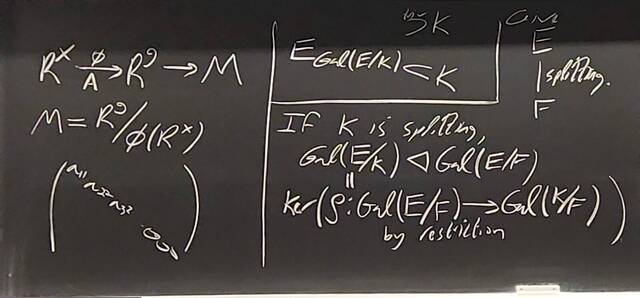 R^x →^φ_A R^y → M
M = R^y/φ(R^x)
K
E_Gal(E/K) < K
E
| splitting.
F
If K is splitting,
Gal(E/K) ◁ Gal(E/F)
||
Ker(ρ: Gal(E/F) → Gal(K/F))
by restriction